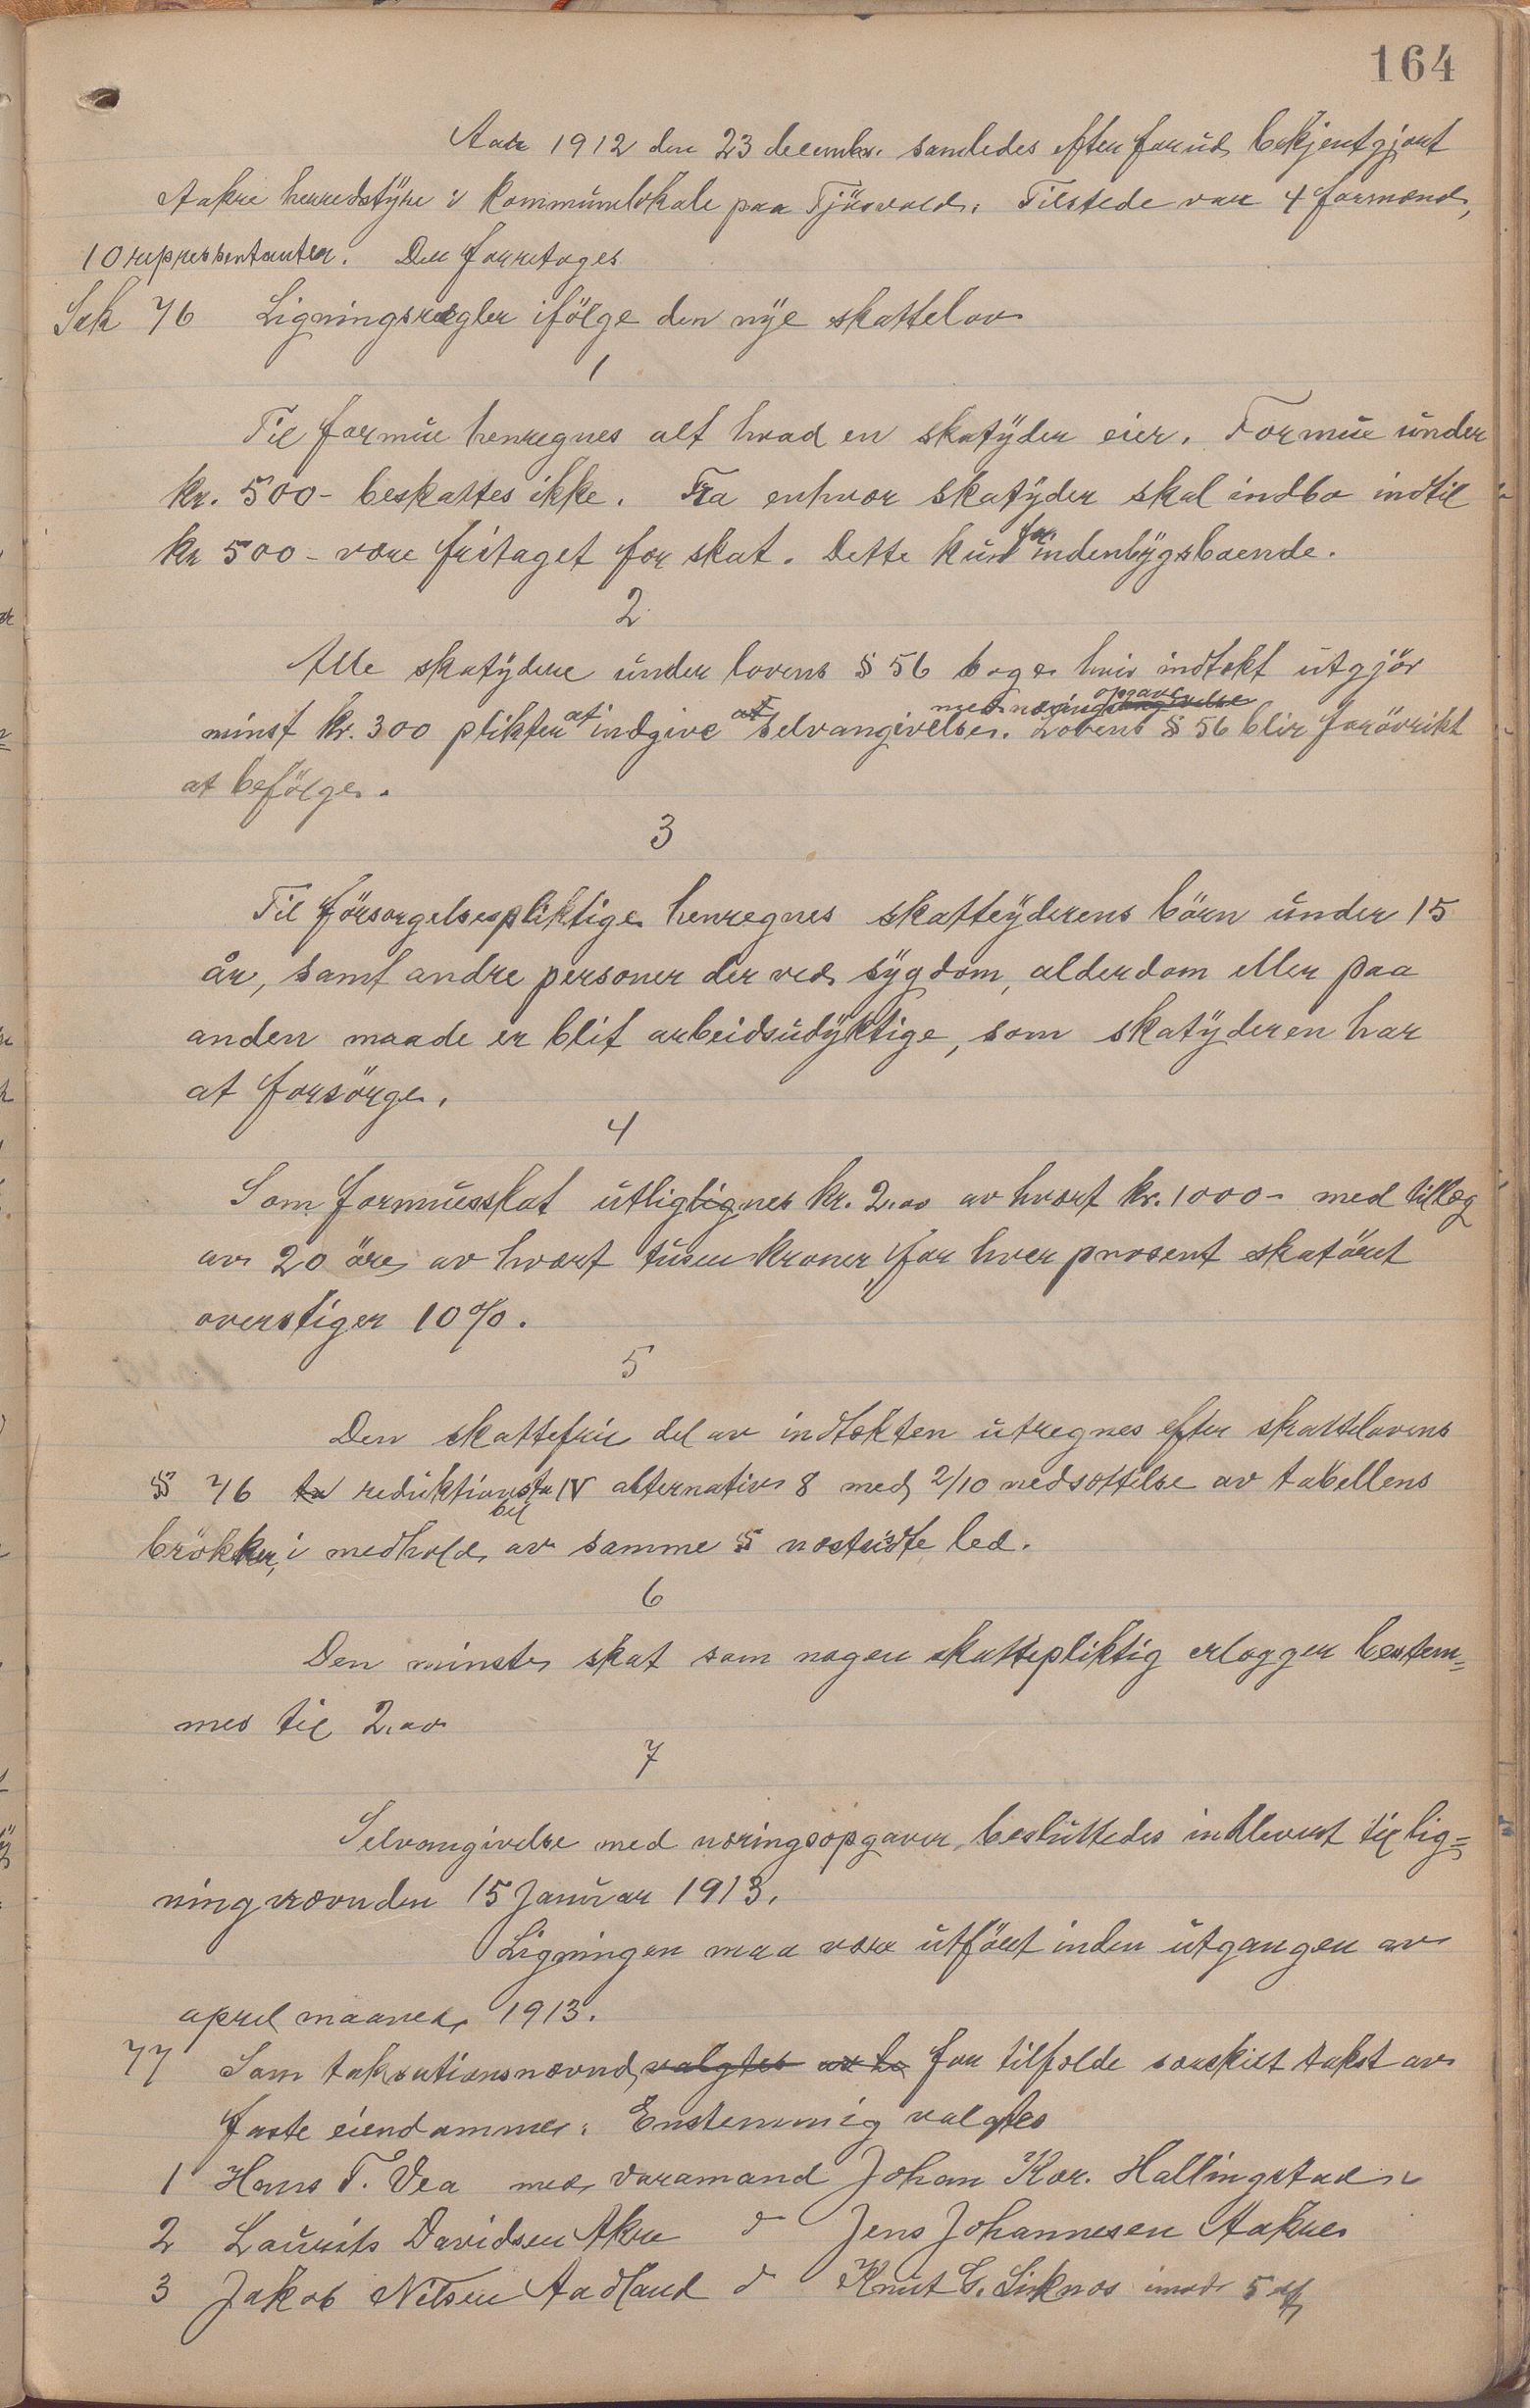 164
Aar 1912 den 23 decembr. samledes efter forud bekjentgjört
Aakre herredstyre i kommunelokale paa Tjösvold. Tilstede var 4 formænd,
10 repressentanter. Der foretoges
Sak 76 Ligningsregler ifölge den nye skattelov
1
Til formue henregnes alt hvad en skatyder eier. Formue under
kr. 500- beskattes ikke. Fra enhver skatyder skal indbo indtil
kr 500- være fritaget for skat. Dette kun for indenbygsboende.
2
Alle skatydere under lovens § 56 boge hvis indtækt utgjör
minst kr. 300 plikter at indgive at selvangivelse. med næringsopgave Lovens § 56 blir forövrikt
at befölge.
3
Til försorgelsespliktige henregnes skatteyderens börn under 15
år, samt andre personer der ved sygdom, alderdom eller paa
anden maade er blit arbeidsudyktige, som skatyderen har
at forsörge.
4
Som formuesskat utliglignes kr. 2.00 av hvært kr. 1000- med tillæg
av 20 öre av hvært tusen kroner, for hver prosent skatöret
overstiger 10%.
5
Den skattefrie del av indtækten utregnes efter skattelovens
§ 76 ta reduktionstabel IV alternativ 8 med 2/10 nedsættelse av tabellens
brökker, i medhold av samme § næstsidste led.
6
Den minste skat som nogen skattepliktig erlægger bestem=
mes til 2.00
7
Selvangivelse med næringsopgaver besluttedes indlevert til lig=
ningsnævnden 15 Januar 1913.
Ligningen maa være utfört inden utgangen av
april maaned 1913.
77 Som taksationsnævnd valgtes av to for tilfælde særskilt takst av
faste eiendommer. Enstemmig valgtes
1 Hans T. Vea med varamand Johan Kor. Hallingstad
2 Laurits Davidsen Akre d Jens Johannesen Aakre
3 Jakob Nilsen Aadland d Knut G. Liknes imod 5 st